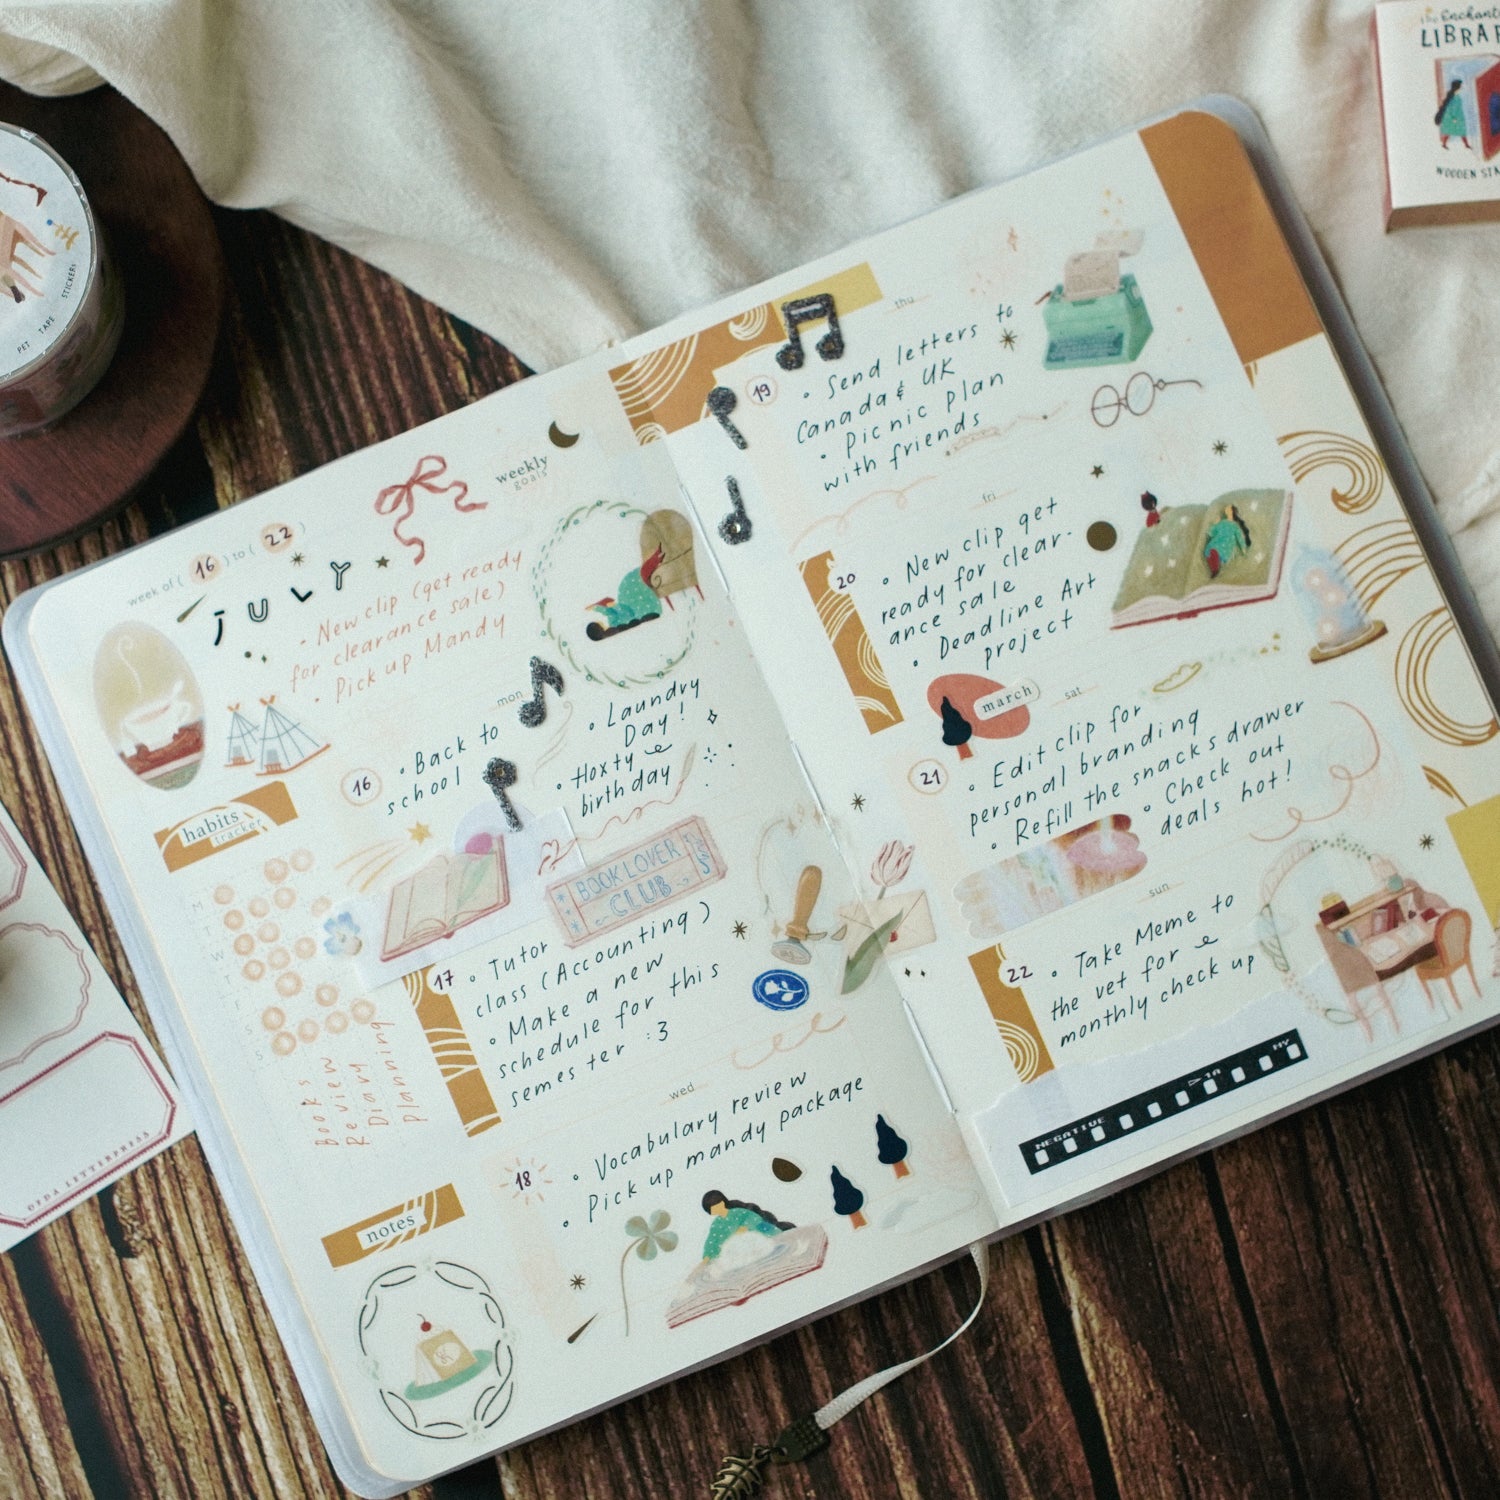 week of ( 16 ) to ( 22 )
JULY
weekly
goals
- New clip (get ready
for clearance sale)
• Pick up Mandy
mon
16
• Back to
school
• Laundry
Day!
• Hoxty
birthday
habits
tracker
M
T
W
T
F
S
S
Books
Review
Diary
planning
BOOK LOVER
CLUB
17
• Tutor
class (Accounting)
• Make a new
schedule for this
semester :3
wed
18
• Vocabulary review
• Pick up mandy package
notes
thu
19
• Send letters to
Canada & UK
• Picnic plan
with friends
fri
20
• New clip get
ready for clear-
ance sale
• Deadline Art
project
march
sat
21
• Edit clip for
personal branding
• Refill the snacks drawer
• Check out
deals hot!
sun
22
• Take Meme to
the vet for
monthly check up
NEGATIVE
PET TAPE STICKERS
Hi
OPDA LETTERPRESS
The Enchant
LIBRA
WOODEN STA